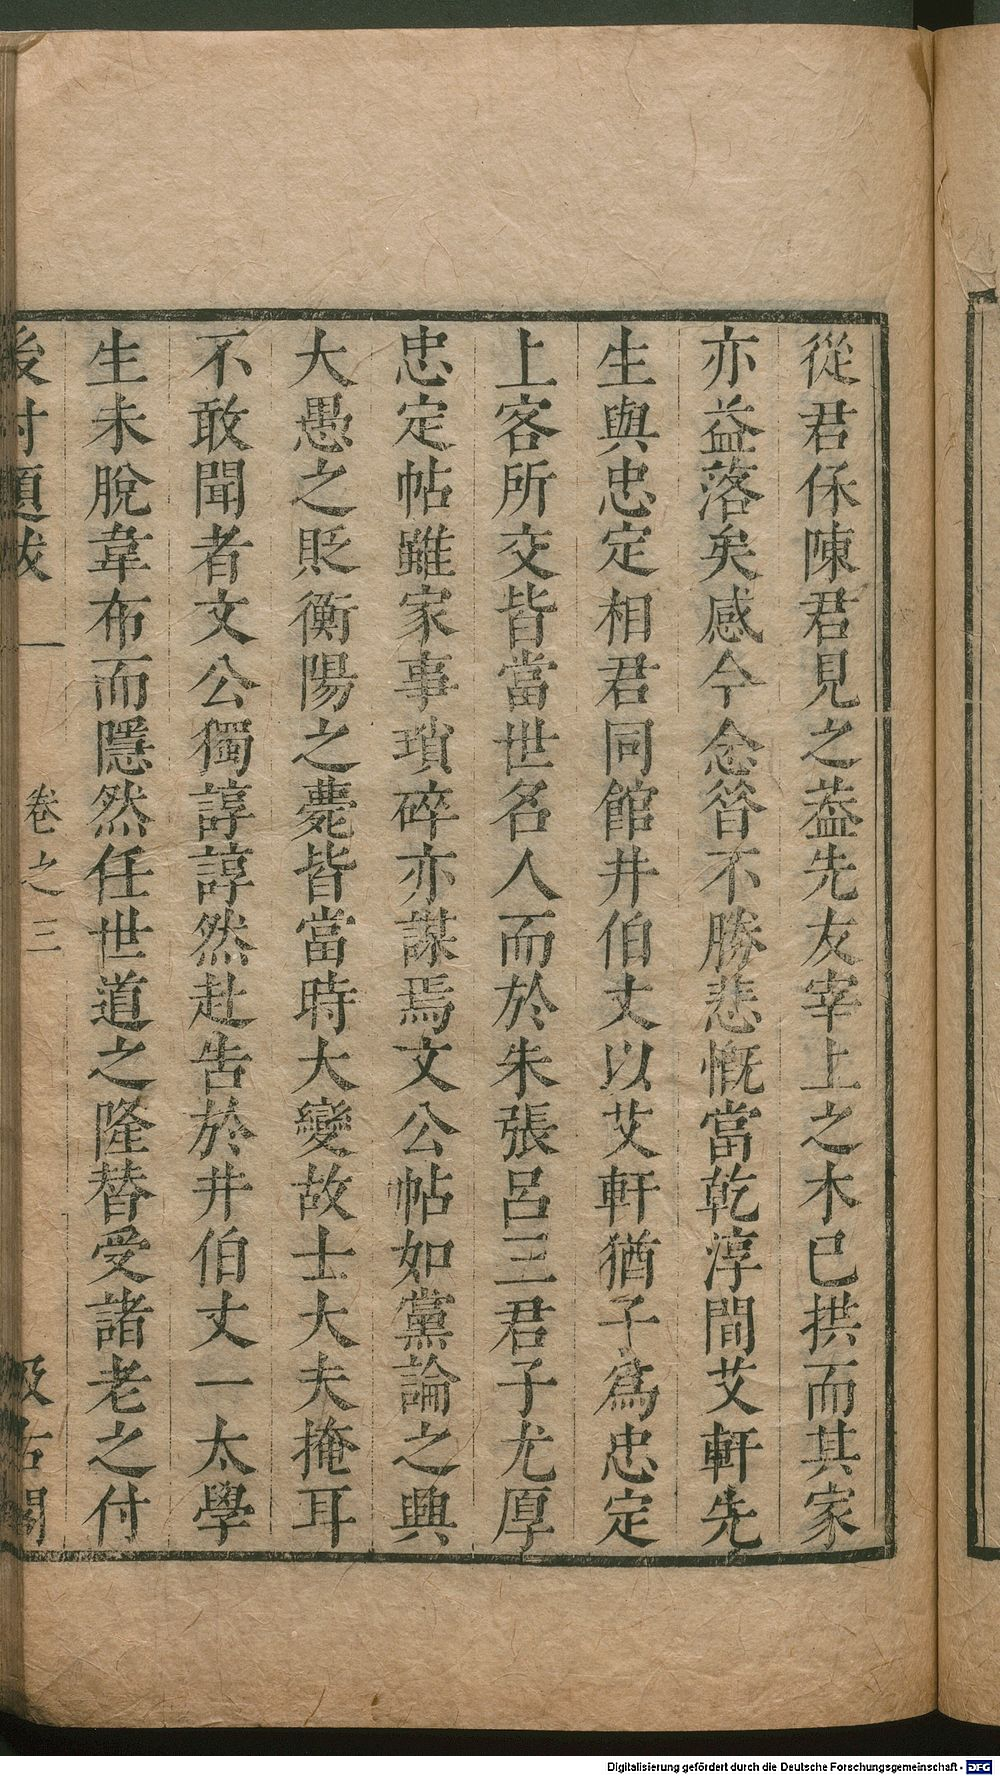 從君係陳君見之葢先友宰上之木已拱而其家
亦益落矣感今念昝不勝悲慨當乾淳間艾軒先
生與忠定相君同館井伯丈以艾軒猶子爲忠定
上客所交皆當世名人而於朱張呂三君子尤厚
忠定帖雖家事瑣碎亦謀焉文公帖如黨論之興
大愚之貶衡陽之薨皆當時大變故士大夫掩耳
不敢聞者文公獨諄諄然赴告於井伯丈一太學
生未脫韋布而隱然任世道之隆替受諸老之付
後村題跋 一 卷之三 汲古閣
Digitalisierung gefördert durch die Deutsche Forschungsgemeinschaft - DFG